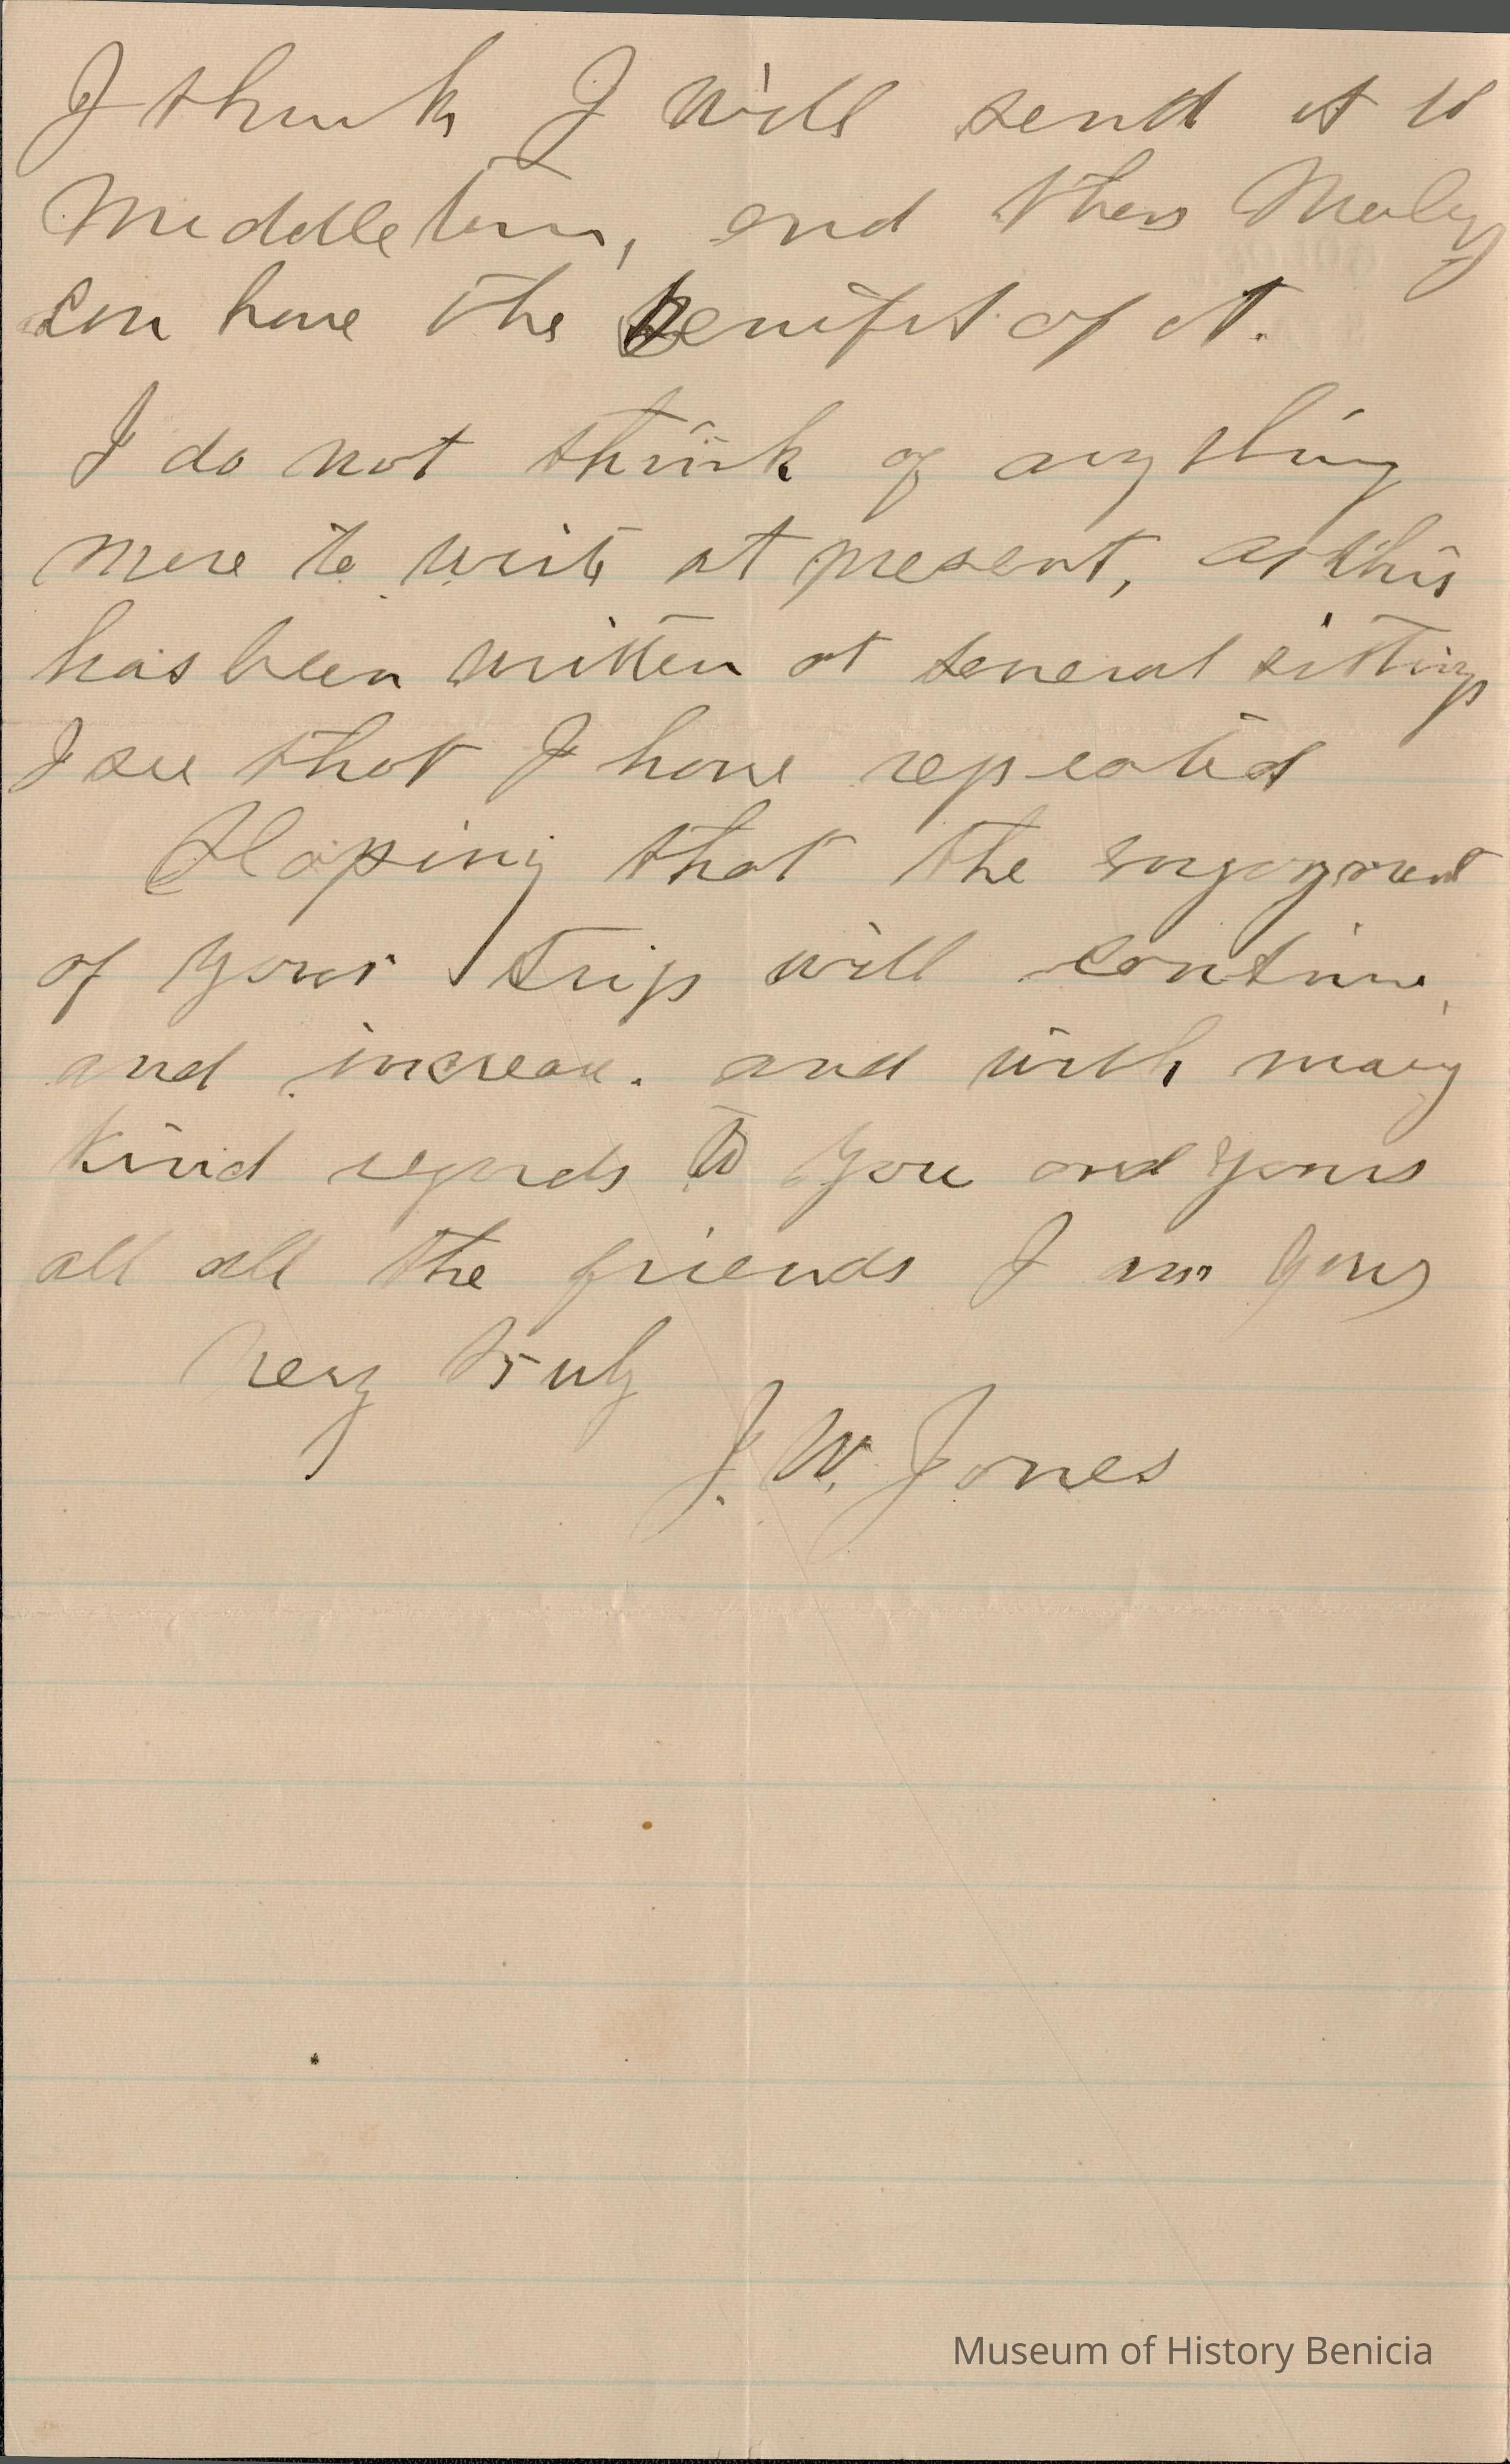 I think I will send it to
Middletown, and then
can have the benifit of it.
I do not think of anything
more to write at present, as this
has been written at several sittings
I see that I have repeated
Hoping that the enjoyment
of your trip will continue,
and increase. and with many
kind regards to you and yours
all all the friends I am yours
very truly
J. W. Jones
Museum of History Benicia